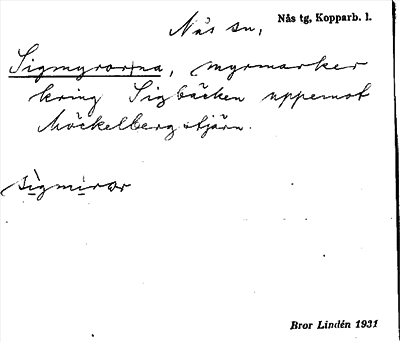 Nås sn,
Nås tg, Kopparb. l.
Sigmyrorna, myrmarker
kring Sigbäcken uppemot
Möckelbergstjärn.
sìgmìrar
Bror Lindén 1931